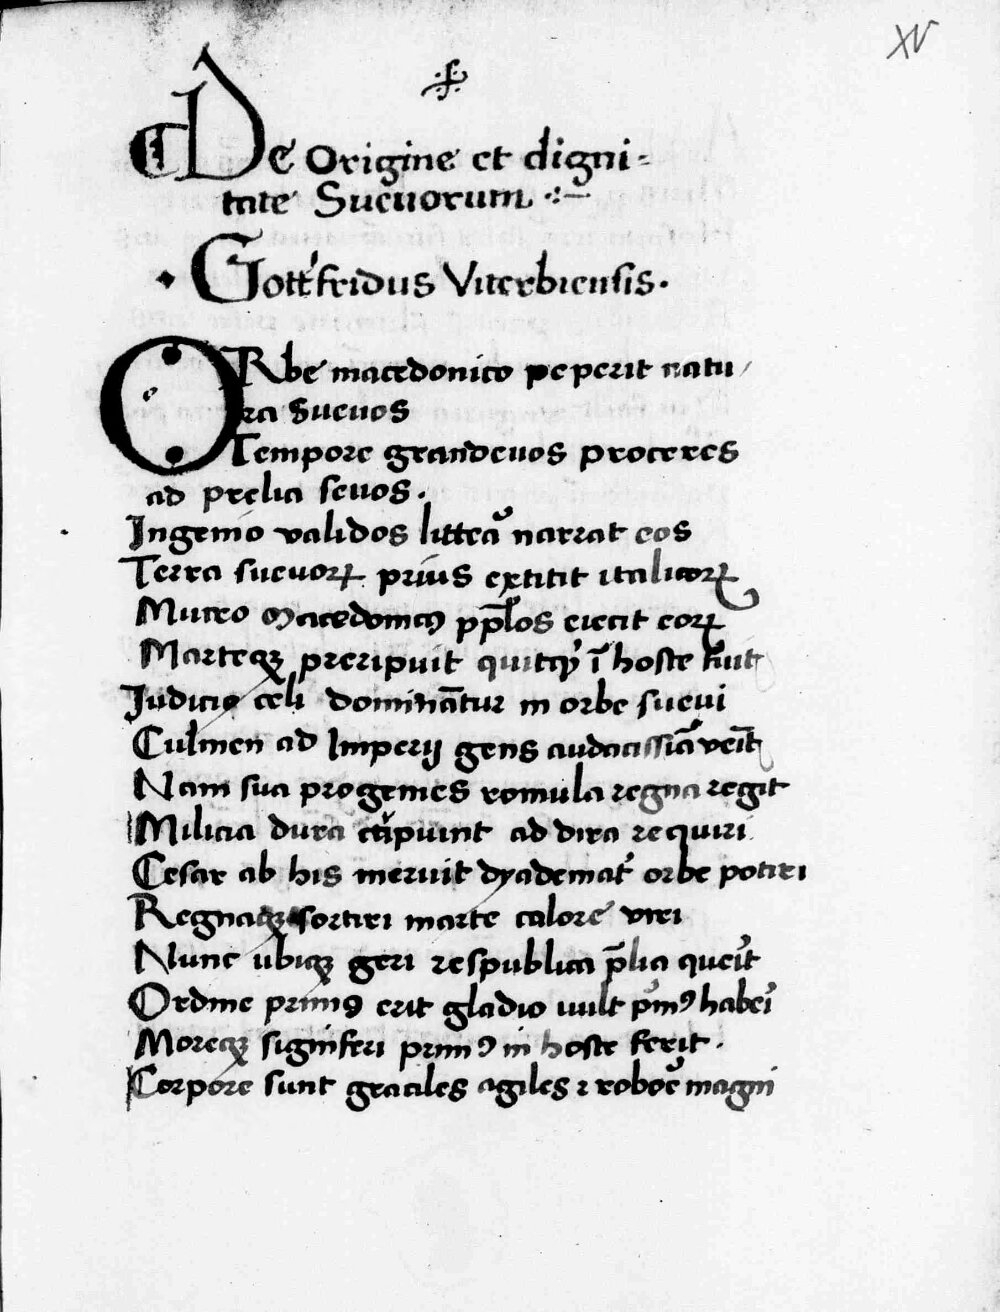 XV
De Origine et digni-
tate Sueuorum
Gottfridus Viterbiensis.
ORbe macedonico peperit natu
ra Sueuos
Tempore grandeuos proceres
ad prelia seuos.
Ingenio validos litterā narrat eos
Terra sueuoꝝ prius extitit italicoꝝ
Mucro Macedonicꝯ pp̄los eiecit eoꝝ
Marteqꝫ preripuit ī hoste
Iudicio celi domināt̄ur in orbe sueui
Culmen ad Imperij gens audacissīa veīt
Nam sua progenies romula regna regit
Milicia dura ad dira requiri
Cesar ab his meruit dyademat̄ orbe potiri
Regnaqꝫ sortiri marte calore viri
Nunc ubiqꝫ geri respublica p̄lia
Ordine primꝯ erit gladio uult p̄mꝯ
Moreqꝫ signiferi primꝯ in hoste ferit.
Corpore sunt graciles agiles ⁊ magni